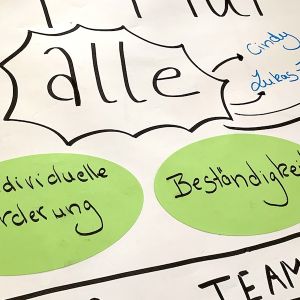 alle
Cindy
Lukas
dividuelle
rderung
Beständigkei
TEAM